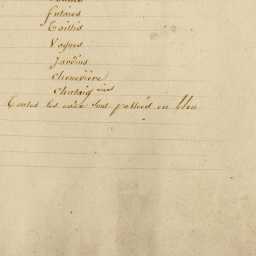 futaies
Taillis
Vagues
Jardins
chenevière
chataig niers
Toutes les eaux sont passées en bleu